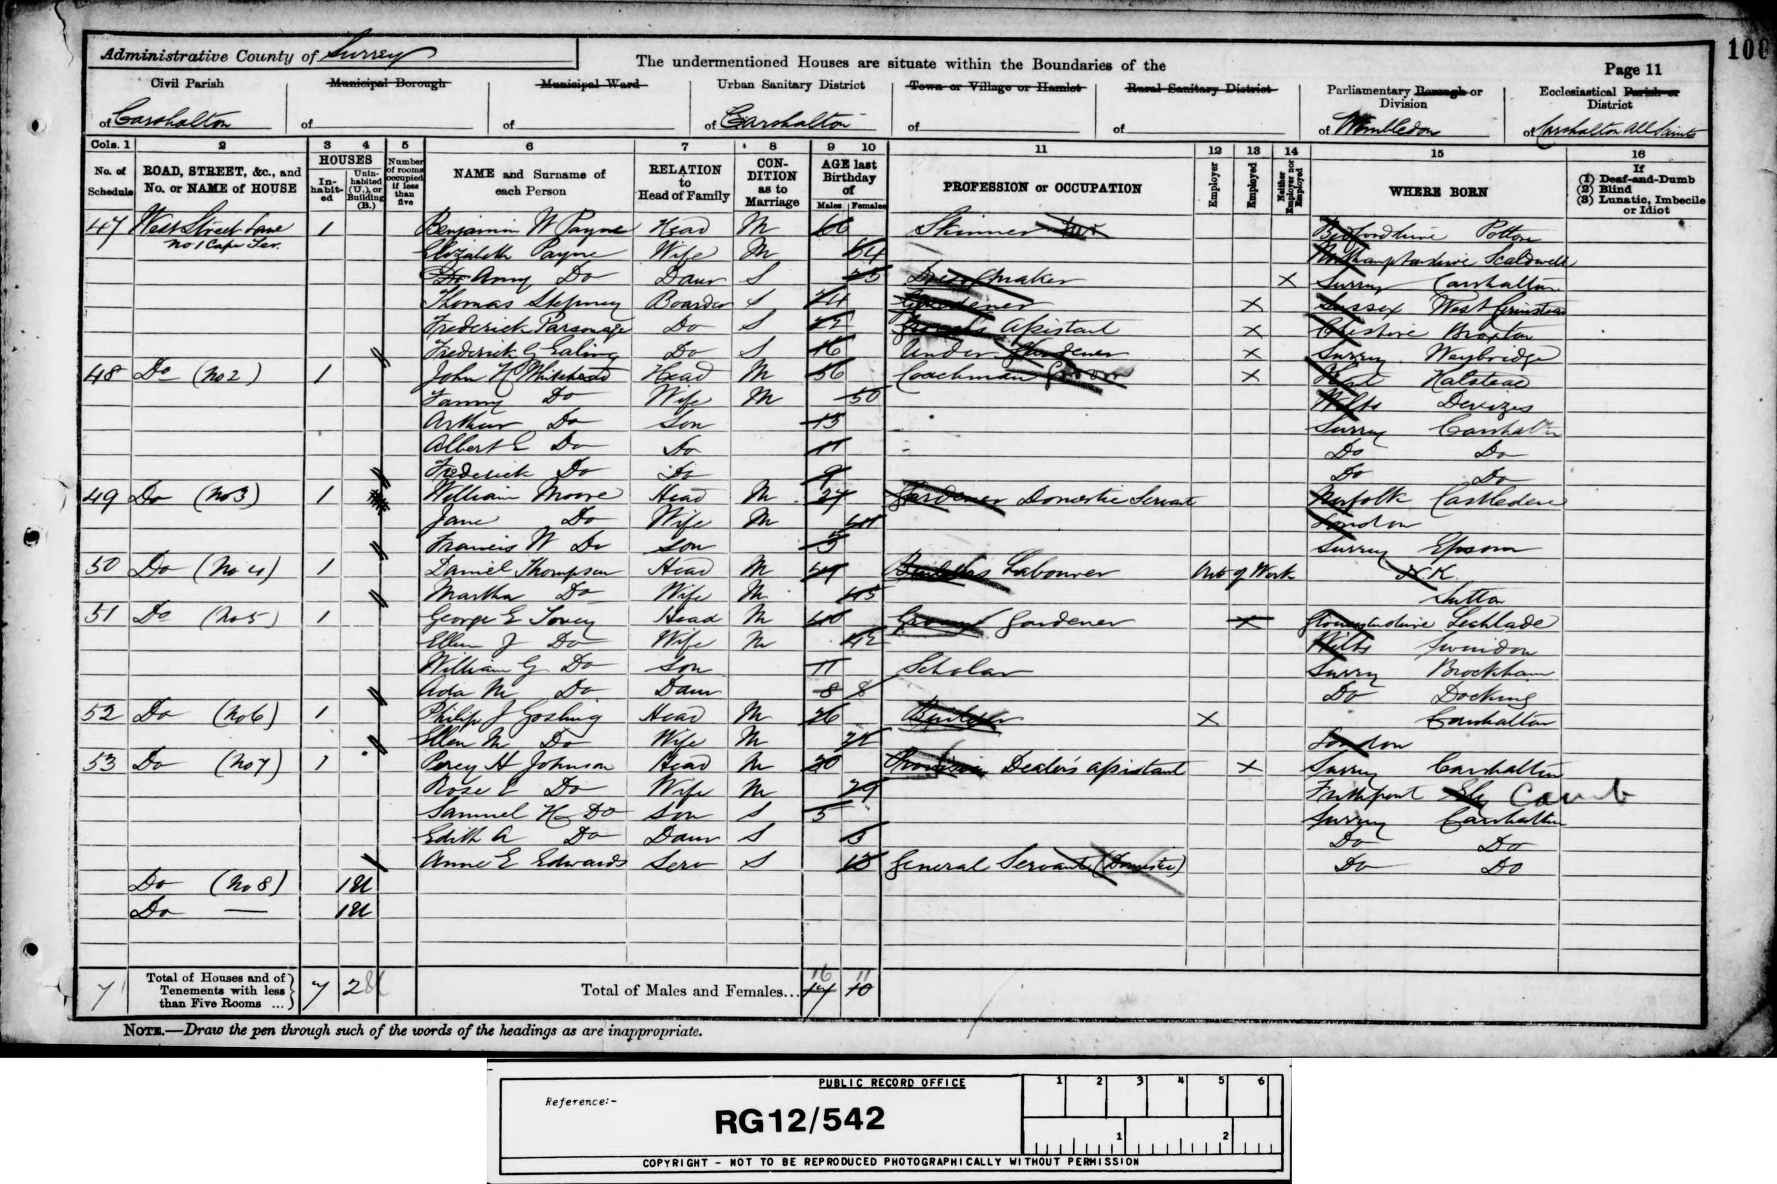 Administrative County of Surrey
The undermentioned Houses are situate within the Boundaries of the
Page 11
100
Civil Parish
Municipal Borough
Municipal Ward
Urban Sanitary District
Town or Village or Hamlet
Rural Sanitary District
Parliamentary Borough or Division
Ecclesiastical Parish or District
of Carshalton
of
of
of Carshalton
of
of
of Wimbledon
of Carshalton All Saints
Cols. 1 2 3 4 5 6 7 8 9 10 11 12 13 14 15 16
No. of Schedule
ROAD, STREET, &c., and No. or NAME of HOUSE
HOUSES
In-habit-ed
Unin-habited (U.), or Building (B.)
Number of rooms occupied if less than five
NAME and Surname of each Person
RELATION to Head of Family
CON-DITION as to Marriage
AGE last Birthday of
Males Females
PROFESSION or OCCUPATION
Employer
Employed
Neither Employer nor Employed
WHERE BORN
If
(1) Deaf-and-Dumb
(2) Blind
(3) Lunatic, Imbecile or Idiot
47 West Street Lane 1 Benjamin W Payne Head M Skinner Bedfordshire Potton
No 1 Ter. Elizabeth Payne Wife M 64 Northamptonshire Scaldwell
Amy Do Daur S 25 Dressmaker X Surrey Carshalton
Thomas Stepney Boarder S 24 Gardener X Sussex West Grinstead
Frederick Parsonage Do S 22 Assistant X Cheshire Broxton
Frederick G Ealing Do S 16 Under Gardener X Surrey Weybridge
48 Do (No 2) 1 John H Whitehead Head M 56 Coachman Groom X Kent Halstead
Fanny Do Wife M 50 Wilts Devizes
Arthur Do Son 13 Surrey Carshalton
Albert E Do Do 11 Do Do
Frederick Do Do 9 Do Do
49 Do (No 3) 1 William Moore Head M 27 Gardener Domestic Servant Norfolk
Jane Do Wife M London
Francis W Do Son 3 Surrey Epsom
50 Do (No 4) 1 Daniel Thompson Head M Builders Labourer Out of Work N K
Martha Do Wife M 45 Sutton
51 Do (No 5) 1 George E Tovey Head M 40 Gardener X Gloucestershire Lechlade
Ellen J Do Wife M 42 Wilts Swindon
William G Do Son 11 Scholar Surrey Brockham
Ada M Do Daur 8 8 Do Docking
52 Do (No 6) 1 Philip J Gosling Head M 26 Builder X Carshalton
Ellen M Do Wife M London
53 Do (No 7) 1 Percy H Johnson Head M 30 Provision Dealer's Assistant X Surrey Carshalton
Rose E Do Wife M 29 Ely Camb
Samuel H Do Son S 5 Surrey Carshalton
Edith A Do Daur S 3 Do Do
Anne E Edwards Serv S 13 General Servant (Domestic) Do Do
Do (No 8) 1U
Do — 1U
7 Total of Houses and of Tenements with less than Five Rooms ... 7 2
Total of Males and Females... 16 11
17 10
NOTE.—Draw the pen through such of the words of the headings as are inappropriate.
PUBLIC RECORD OFFICE
Reference:-
RG12/542
1 2 3 4 5 6
1 2
COPYRIGHT - NOT TO BE REPRODUCED PHOTOGRAPHICALLY WITHOUT PERMISSION